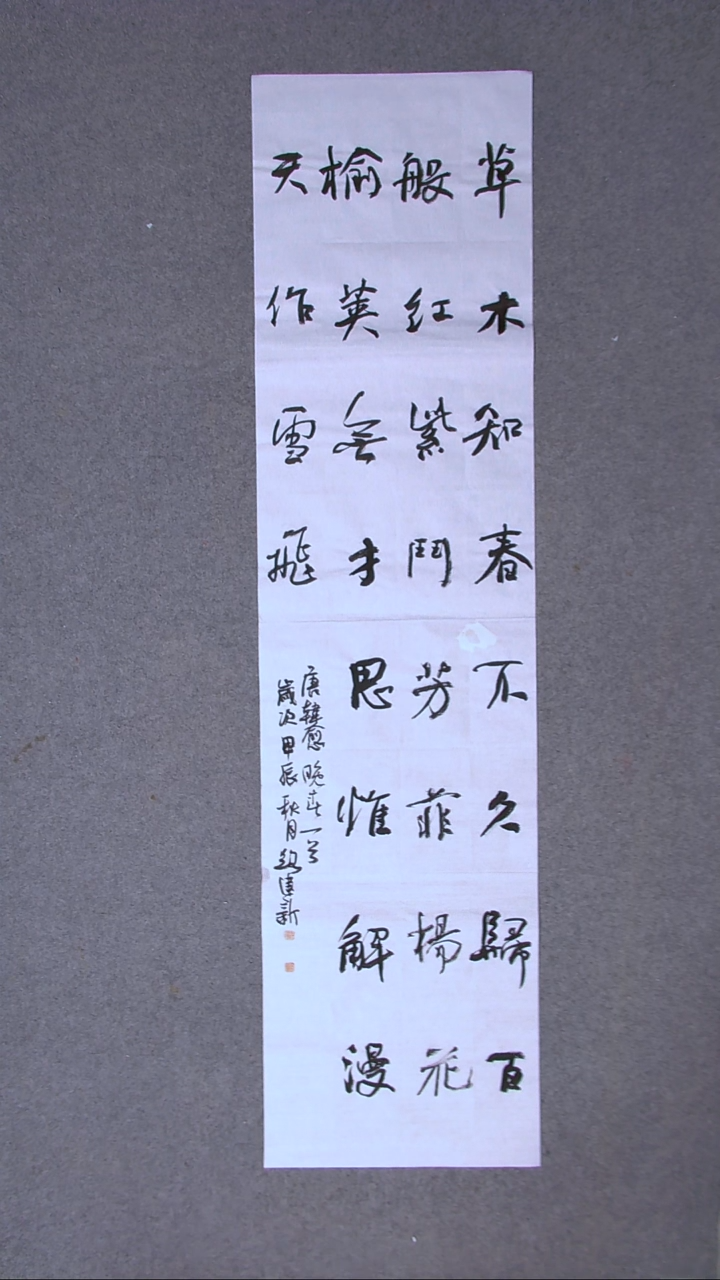 草木知春不久歸百
般红紫鬥芳菲楊花
榆莢無才思惟解漫
天作雪飛
唐韓愈晚春一首
歲次甲辰秋月趙建新